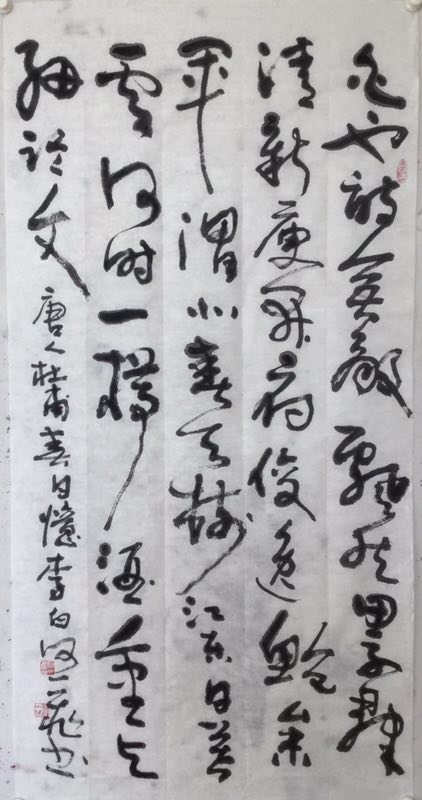 白也詩無敵飄然思不群
清新庾開府俊逸鮑参
軍渭北春天樹江东日暮
雲何时一樽酒重与
細論文
唐人杜甫春日憶李白 书